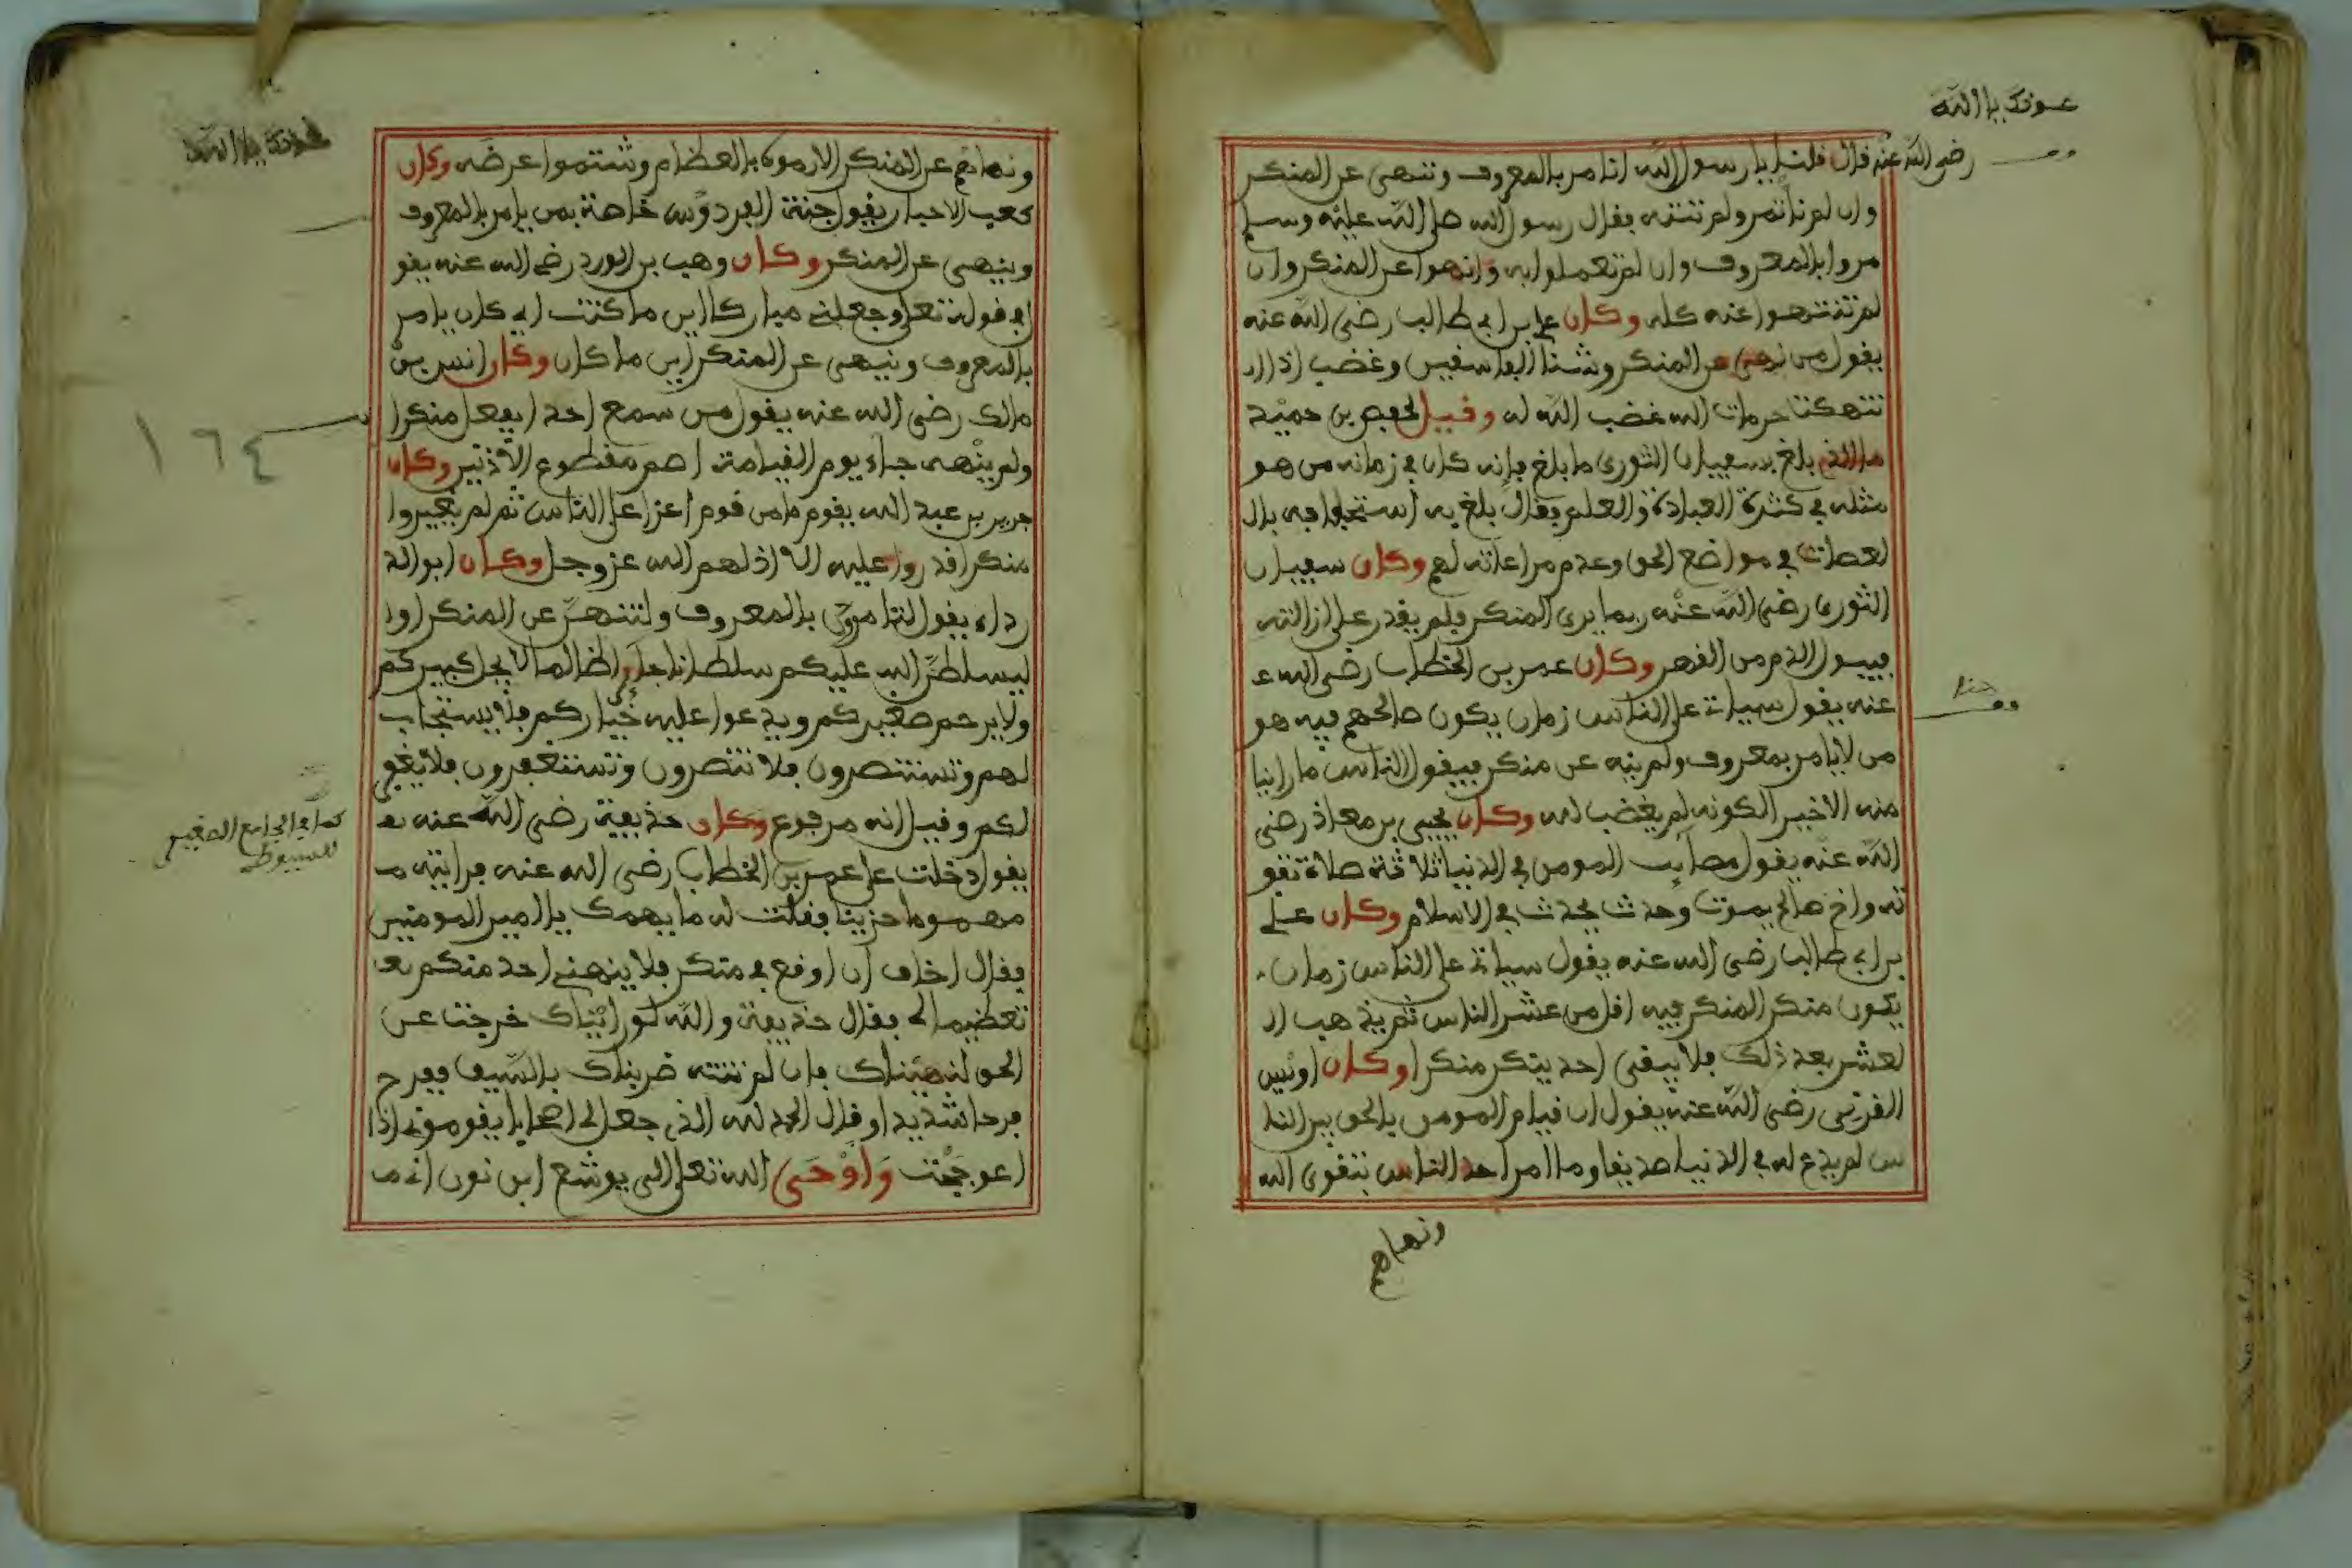 عونك يا الله
رضي الله عنه قال قلنا يا رسول الله انامر بالمعروف وننهى عن المنكر
وان لم ناتمر ولم ننته فقال رسول الله صلى الله عليه وسلم
مروا بالمعروف وان لم تعملوا به وانهوا عن المنكر وان
لم تنتهوا عنه كله وكان علي بن ابي طالب رضي الله عنه
يقول من نهى عن المنكر وشنأ الفاسفين وغضب اذا ا
نتهكت حرمات الله غضب الله له وقيل لحفص بن حميد
ما الذي بلغ بسعيان الثوري ما بلغ فانه كان في زمانه من هو
مثله في كثرة العبادة والعلم فقال بلغ به استخفافه بال
لعصات في مواضع الحق وعدم مراعاته لهم وكان سفيان
الثوري رضي الله عنه ربما يرى المنكر فلم يقدر على ازالته
فيبول الدم من القهر وكان عمر بن الخطاب رضي الله ع
عنه يقول سياتي على الناس زمان يكون صالحهم فيه هو
من لا يامر بمعروف ولم ينه عن منكر فيقول الناس ما راينا
منه الا خيرا لكونه لم يغضب لله وكان يحيى بن معاذ رضي
الله عنه يقول مصايب المومن في الدنيا ثلاثة صلاة تفو
ته واخ صالح يموت وحدث يحدث في الاسلام وكان علي
بن ابي طالب رضي الله عنه يقول سياتي على الناس زمان
يكون منكر المنكر فيه اقل من عشر الناس ثم يذهب ال
لعشر بعد ذلك فلا يبقى احد ينكر منكرا وكان اويس
القرني رضي الله عنه يقول ان قيام المومن بالحق بين النا
س لم يدع له في الدنيا صديقا وما امر احد الناس بتقوى الله
ونهاهم
عونك يا الله
ونهاهم عن المنكر الا رموه بالعظام وشتموا عرضه وكان
كعب الاحبار يقول جنة الفردوس خاصة بمن يامر بالمعروف
وينهى عن المنكر وكان وهيب بن الورد رضي الله عنه يقو
في قوله تعلى وجعلني مباركا اين ما كنت اي كان يامر
بالمعروف وينهى عن المنكر اين ما كان وكان انس بن
مالك رضي الله عنه يقول من سمع احدا يفعل منكرا
١٦٤
ولم ينهه جاء يوم القيامة اصم مقطوع الاذنين وكان
جرير بن عبد الله يقول ما من قوم اعزا على الناس ثم لم يغيروا
منكرا قدروا عليه الا اذلهم الله عز وجل وكان ابو الد
رداء يقول لتامرن بالمعروف ولتنهن عن المنكر او
ليسلطن الله عليكم سلطانا جائرا ظالما لا يجل كبيركم
ولا يرحم صغيركم ويدعوا عليه خياركم فلا يستجاب
لهم وتستنصرون فلا تنصرون وتستغفرون فلا يغفر
لكم وقيل انه مرفوع وكان حذيفة رضي الله عنه
كما في الجامع الصغير
للسيوطي
يقول دخلت على عمر بن الخطاب رضي الله عنه فرايته م
مهموما حزينا فقلت له ما يهمك يا امير المومنين
فقال اخاف ان اوقع في منكر فلا ينهني احد منكم
تعظيما لي فقال حذيفة والله لو رايناك خرجت عن
الحق لنهيناك فان لم تنته ضربناك بالسيف ففرح
فرحا شديدا وقال الحمد لله الذي جعل لي اصحابا يقومونى اذا
اعوججت واوحى الله تعلى الى يوشع ابن نون اني م